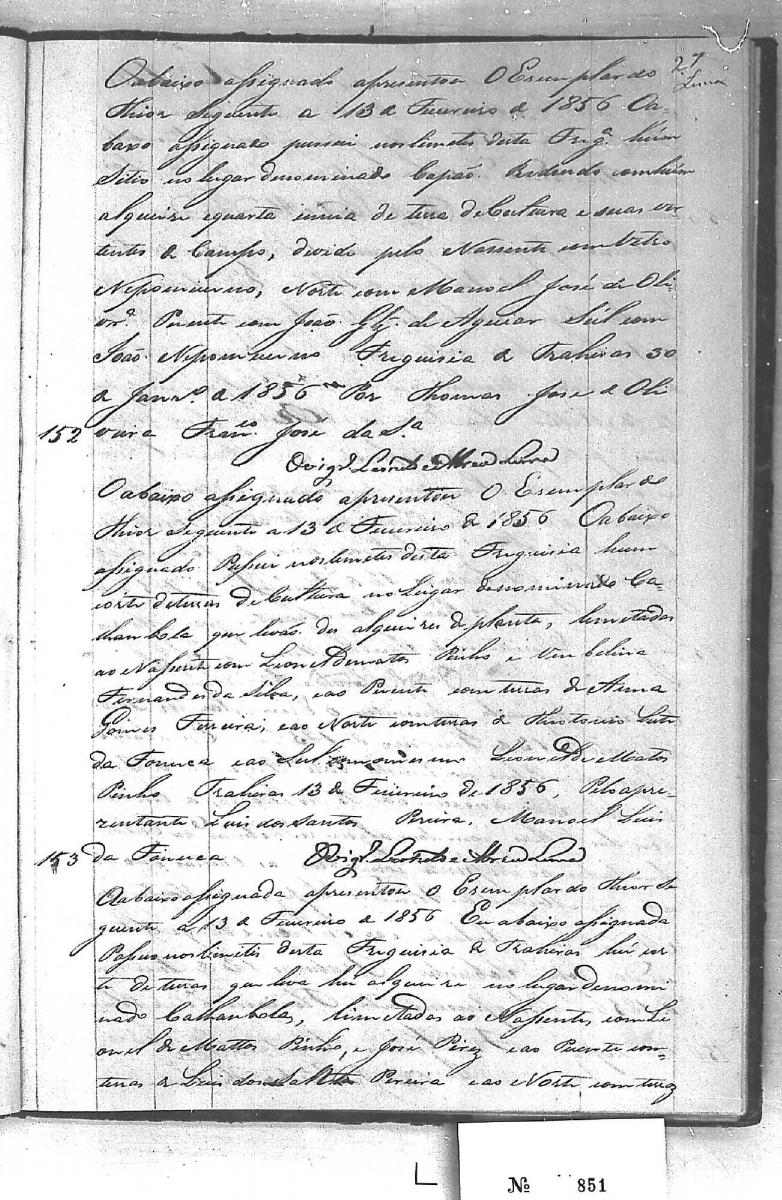 27
Lima
O abaixo assignado apresentou O Exemplar do
Thior Seguinte a 13 de Fevereiro de 1856 O a-
baixo assignado possui nos limetes desta Frgª. hum
Sitio no lugar denominado Capão Redondo com hum
alqueire e quarta e meia de terra de Cultura e suas ver
tentes de Campo, devide pelo Nassente com
Nepomuceno, Norte com Manoel José de Oli-
vrª. Puente com João Glz. de Aguiar Sul com
João Nepomuceno Freguisia de Trahiras 30
de Janrº. de 1856 Por Thomas José de Oli
152 veira Franco. José da Sª
O vigº. Leonel de Abreu Lima
O abaixo assignado apresentou O Exemplar do
Thior Seguinte a 13 de Fevereiro de 1856 O abaixo
assignado Possui nos limetes desta Freguisia hum
corte de terras de Cultura no Lugar denominado Ca-
lhanbola que levão dos alqueires de planta, limetadas
ao Nassente com Leonel de Matos Pinho e Umbelina
Fernandes da Silva, e ao Puente com terras de Anna
Gomes Ferreira, e ao Norte com terras de Leite
da Fonceca e ao Sul com o mesmo Leonel de Matos
Pinho Trahiras 13 de Fevereiro de 1856, Pelo apre-
zentante Luis dos Santos Pereira, Manoel Luis
153 da Fonceca O vigº. Leonel de Abreu Lima
A abaixo assignada apresentou O Exemplar do Thior Se
guinte a 13 de Fevereiro de 1856 Eu abaixo assignada
Possuo nos limetis desta Freguisia de Trahiras hú cor
te de terras que leva hú alqueire no lugar denomi
nado Calhanbolas, limetadas ao Nassente, com Le
onel de Mattos Pinho, e José Perez e ao Puente com
terras de Luis dos Santos Pereira e ao Norte com terras
Nº 851